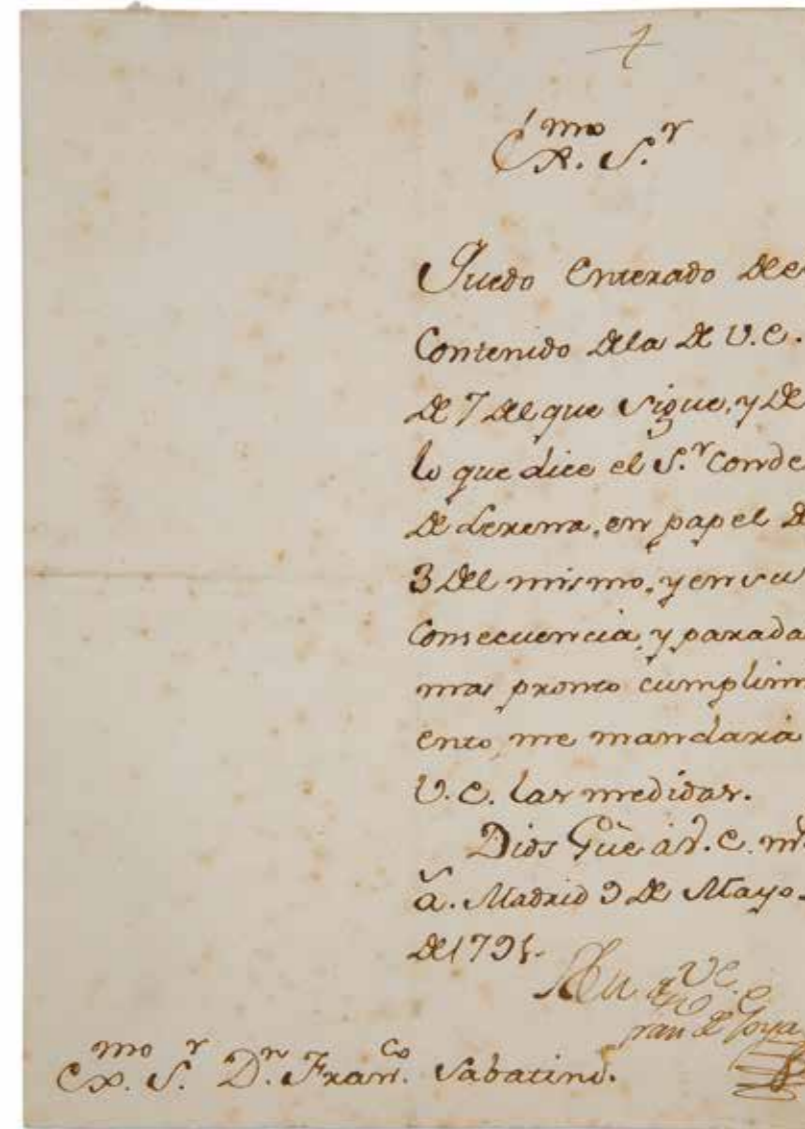 Exmo. S.r
Quedo Enterado del
Contenido dela de V.E.
de 7 del que sigue, y de
lo que dice el S.r Conde
de Lerena, en papel de
3 del mismo, y en su
Consecuencia, y para da
mas pronto cumplim
ento, me mandará
V.E. las medidas.
Dios Güe á V.E. m.s
a. Madrid 9 de Mayo.
de 1791.
V.E.
Fran de Goya
Exmo. S.r D.n Fran.co Sabatini.